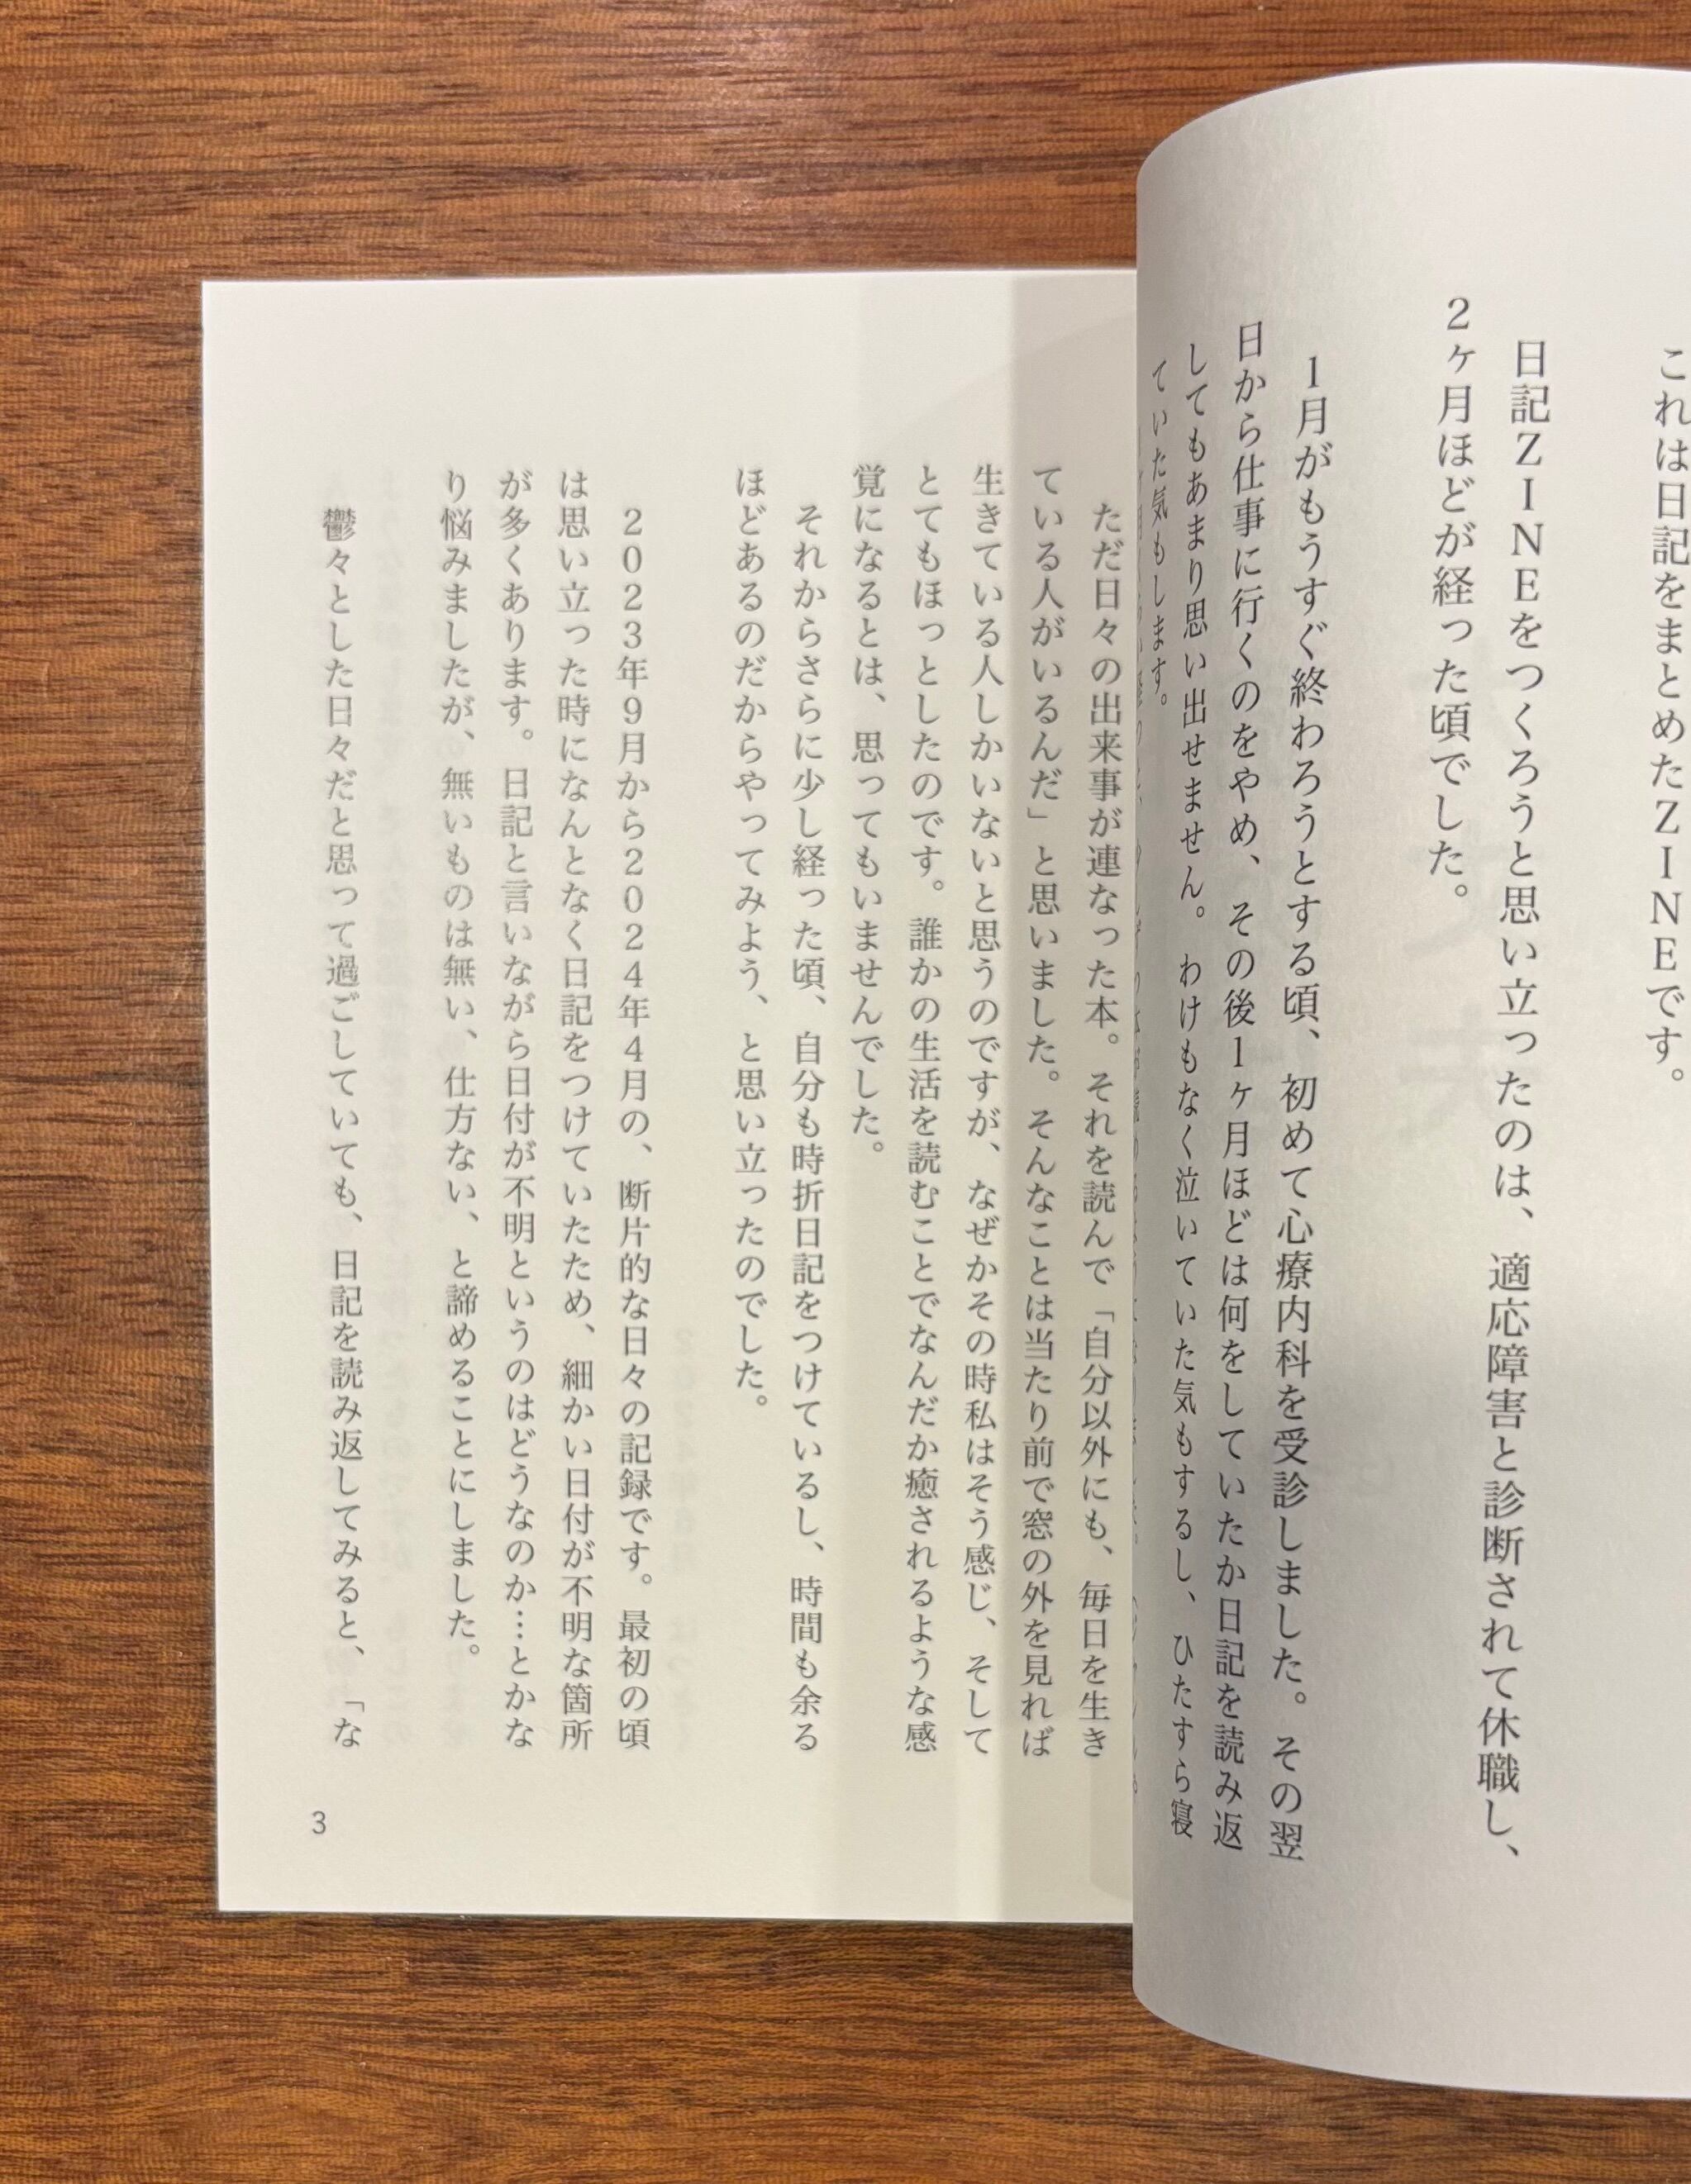 これは日記をまとめたZINEです。
日記ZINEをつくろうと思い立ったのは、適応障害と診断されて休職し、
2ヶ月ほどが経った頃でした。
1月がもうすぐ終わろうとする頃、初めて心療内科を受診しました。その翌
日から仕事に行くのをやめ、その後1ヶ月ほどは何をしていたか日記を読み返
してもあまり思い出せません。わけもなく泣いていた気もするし、ひたすら寝
ていた気もします。
ただ日々の出来事が連なった本。それを読んで「自分以外にも、毎日を生き
ている人がいるんだ」と思いました。そんなことは当たり前で窓の外を見れば
生きている人しかいないと思うのですが、なぜかその時私はそう感じ、そして
とてもほっとしたのです。誰かの生活を読むことでなんだか癒されるような感
覚になるとは、思ってもいませんでした。
それからさらに少し経った頃、自分も時折日記をつけているし、時間も余る
ほどあるのだからやってみよう、と思い立ったのでした。
2023年9月から2024年4月の、断片的な日々の記録です。最初の頃
は思い立った時になんとなく日記をつけていたため、細かい日付が不明な箇所
が多くあります。日記と言いながら日付が不明というのはどうなのか…とかな
り悩みましたが、無いものは無い、仕方ない、と諦めることにしました。
鬱々とした日々だと思って過ごしていても、日記を読み返してみると、「な
3